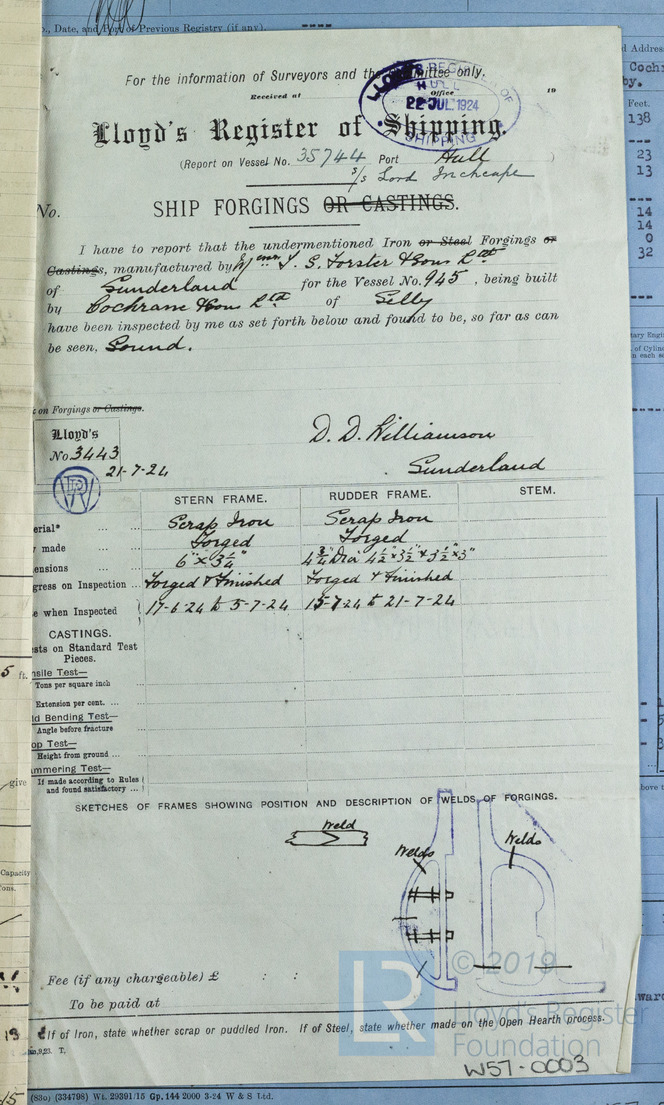 o., Date, and Port of Previous Registry (if any).
For the information of Surveyors and the Committee only.
Received at
Office
19
LLOYD'S REGISTER OF
HULL
22 JUL 1924
SHIPPING
Lloyd's Register of Shipping.
(Report on Vessel No. 35744 Port Hull )
s/s Lord Inchcape
No.
SHIP FORGINGS OR CASTINGS.
I have to report that the undermentioned Iron or Steel Forgings or
Castings, manufactured by Messrs T. S. Forster & Sons Ltd
of Sunderland for the Vessel No. 945, being built
by Cochrane & Sons Ltd of Selby
have been inspected by me as set forth below and found to be, so far as can
be seen, Sound.
on Forgings or Castings.
Lloyd's
No 3443
21-7-24
LR
D. D. Williamson
Sunderland
STERN FRAME. RUDDER FRAME. STEM.
erial* Scrap Iron Scrap Iron
made Forged Forged
ensions 6" x 3¼" 4¾" Dia 4½" x 3½" & 3½" x 3"
gress on Inspection Forged & Finished Forged & Finished
e when Inspected 17-6-24 to 5-7-24 15-7-24 to 21-7-24
CASTINGS.
ests on Standard Test
Pieces.
nsile Test—
Tons per square inch
Extension per cent.
ld Bending Test—
Angle before fracture
op Test—
Height from ground
ammering Test—
If made according to Rules
and found satisfactory
SKETCHES OF FRAMES SHOWING POSITION AND DESCRIPTION OF WELDS OF FORGINGS.
Weld
Welds
Welds
Fee (if any chargeable) £ : :
To be paid at
If of Iron, state whether scrap or puddled Iron. If of Steel, state whether made on the Open Hearth process.
© 2019
LR
Lloyd's Register
Foundation
W57-0003
(830) (334798) Wt. 29391/15 Gp. 144 2000 3-24 W & S Ltd.
d Address
Coch
by.
Feet.
138
23
13
14
14
0
32
5 ft.
give
Capacity
Tons.
13
15